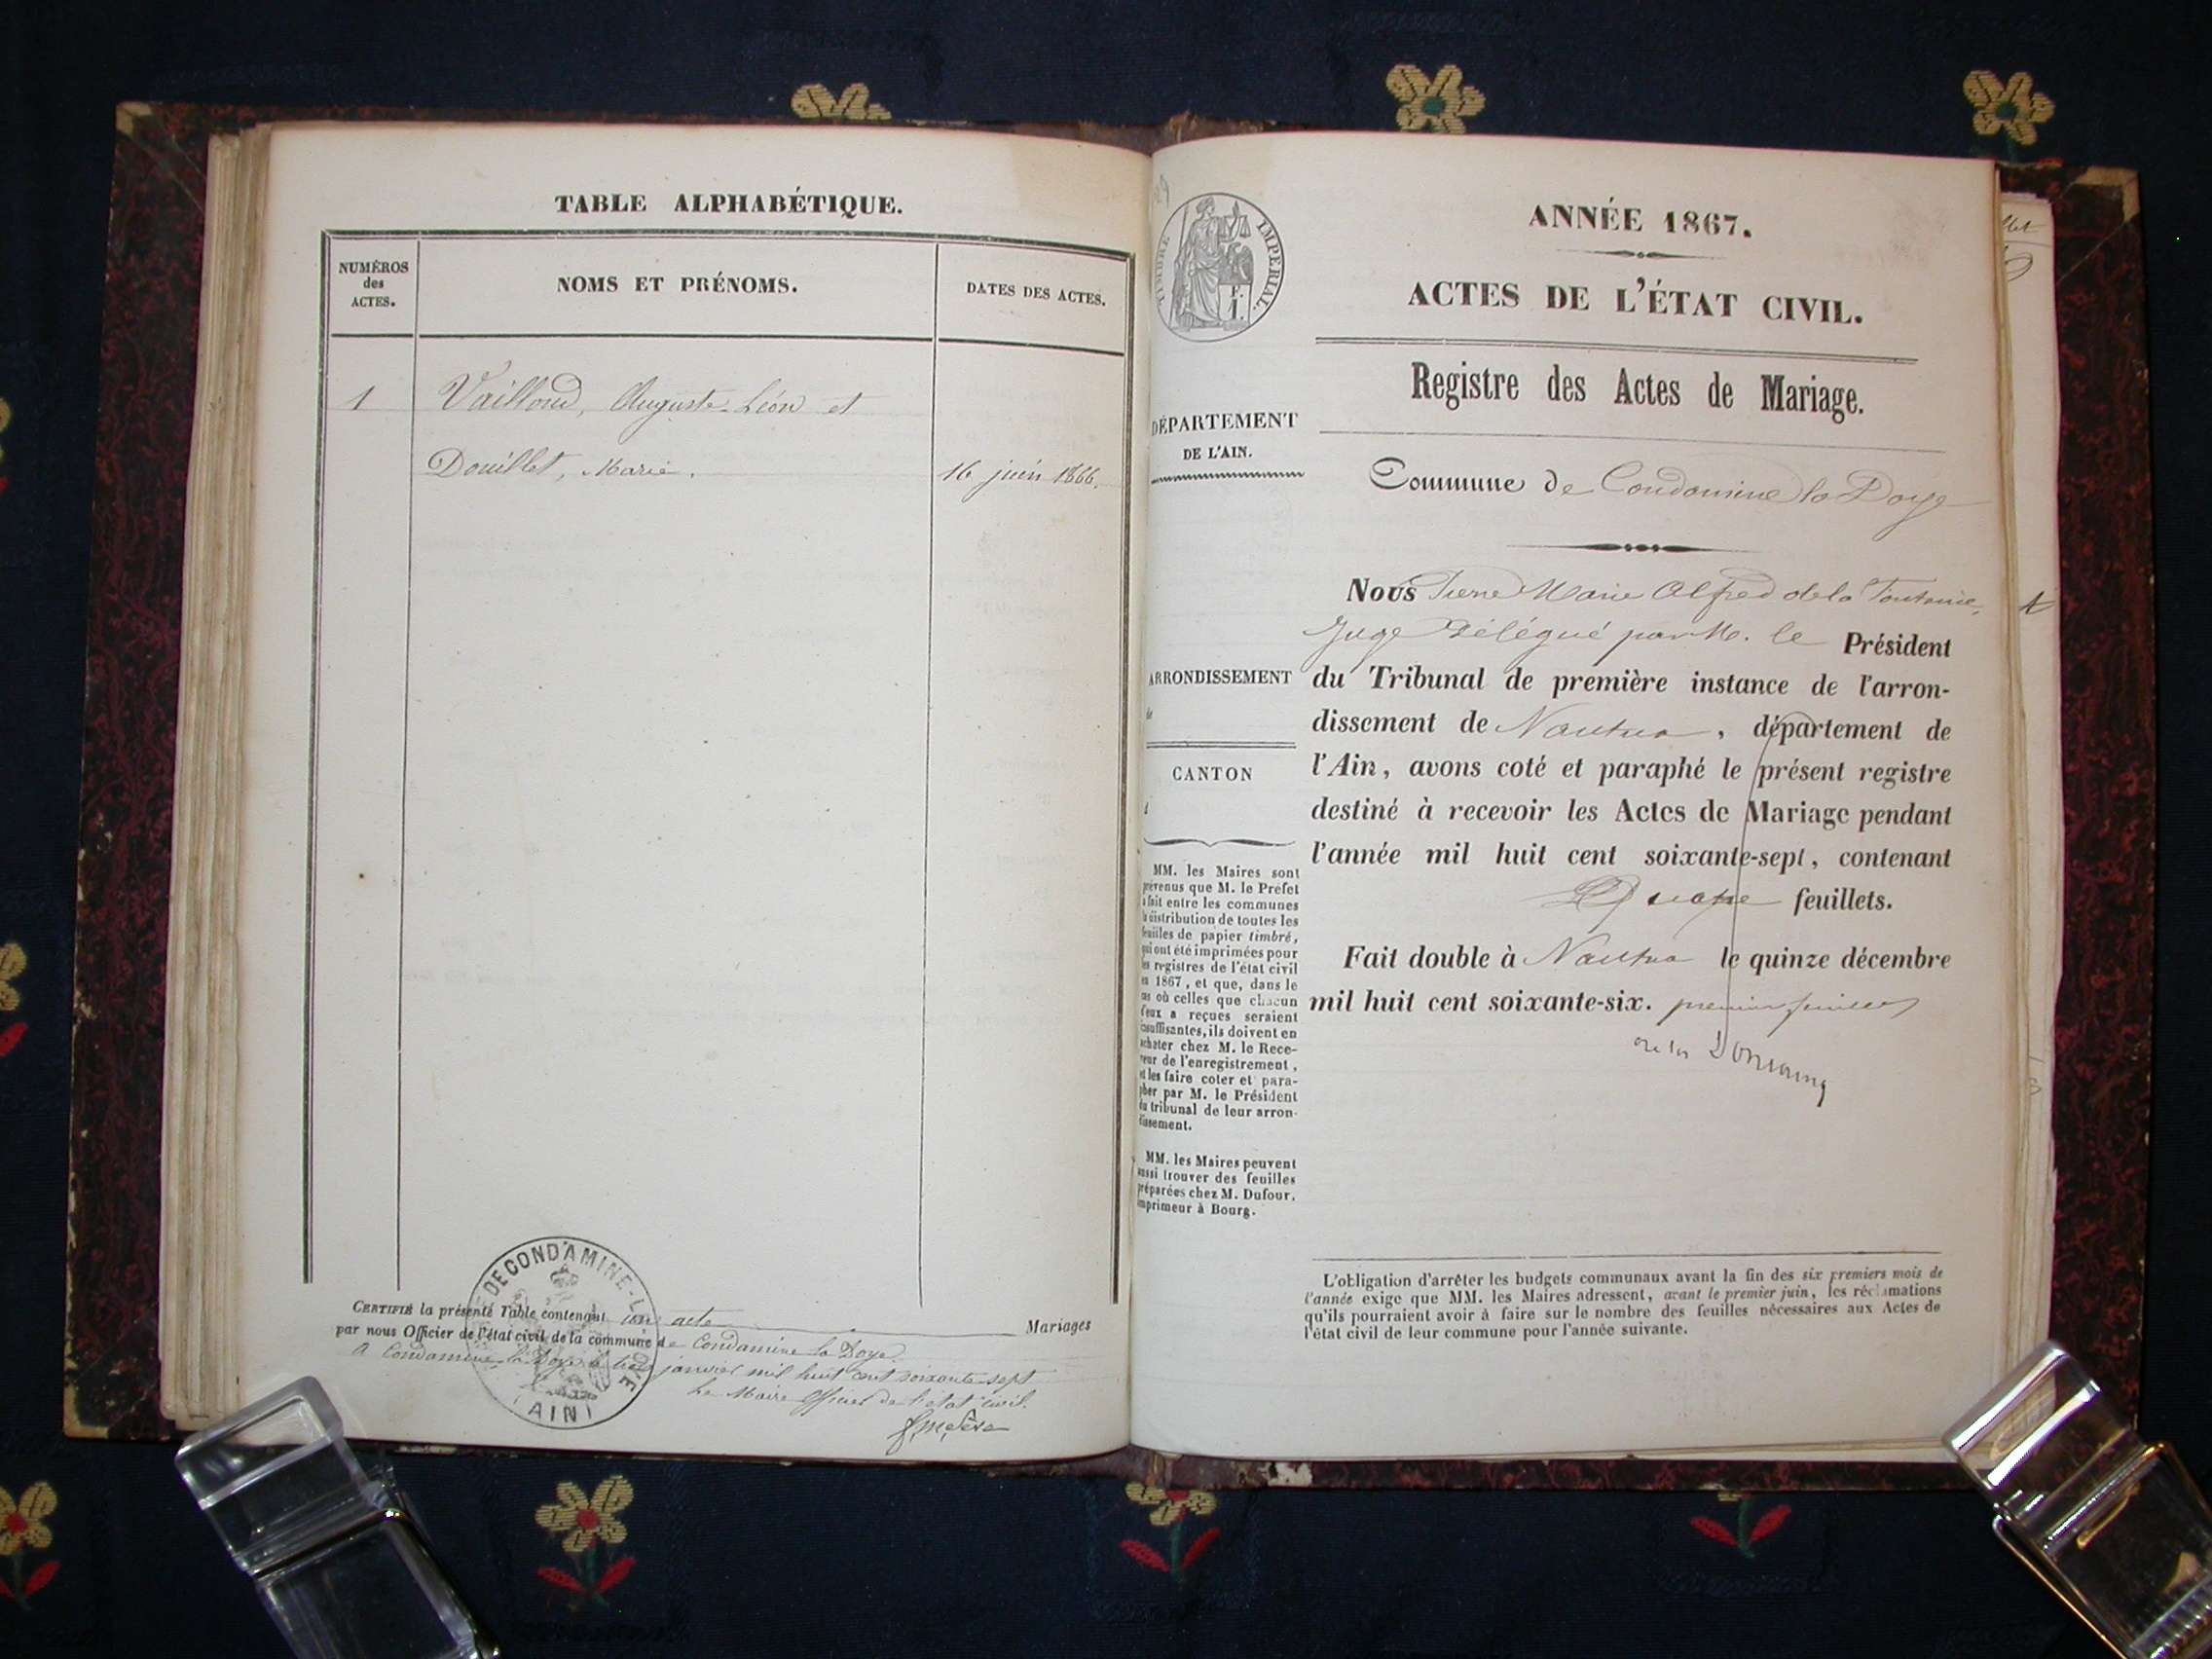 TABLE ALPHABÉTIQUE.
NUMÉROS
des
ACTES.
NOMS ET PRÉNOMS.
DATES DES ACTES.
1 Vailloud, Auguste-Léon et
Douillet, Marie. 16 juin 1866.
DE CONDAMINE-L
(AIN)
CERTIFIÉ la présente Table contenant un acte Mariages
par nous Officier de l'état civil de la commune de Condamine la Doye
A Condamine la Doye le trois janvier mil huit cent soixante-sept
Le Maire Officier de l'état civil.
TIMBRE IMPERIAL.
ANNÉE 1867.
ACTES DE L'ÉTAT CIVIL.
Registre des Actes de Mariage.
DÉPARTEMENT
DE L'AIN.
Commune de Condamine la Doye
Nous Pierre Marie Alfred de la
Juge Délégué par M. le Président
ARRONDISSEMENT
de
du Tribunal de première instance de l'arron-
dissement de Nantua, département de
CANTON
d
l'Ain, avons coté et paraphé le présent registre
destiné à recevoir les Actes de Mariage pendant
l'année mil huit cent soixante-sept, contenant
Quatre feuillets.
Fait double à Nantua le quinze décembre
mil huit cent soixante-six. premier feuillet
MM. les Maires sont
prévenus que M. le Préfet
a fait entre les communes
la distribution de toutes les
feuilles de papier timbré,
qui ont été imprimées pour
les registres de l'état civil
en 1867, et que, dans le
cas où celles que chacun
d'eux a reçues seraient
insuffisantes, ils doivent en
acheter chez M. le Rece-
veur de l'enregistrement,
et les faire coter et para-
pher par M. le Président
du tribunal de leur arron-
dissement.
MM. les Maires peuvent
aussi trouver des feuilles
préparées chez M. Dufour,
imprimeur à Bourg.
L'obligation d'arrêter les budgets communaux avant la fin des six premiers mois de
l'année exige que MM. les Maires adressent, avant le premier juin, les réclamations
qu'ils pourraient avoir à faire sur le nombre des feuilles nécessaires aux Actes de
l'état civil de leur commune pour l'année suivante.